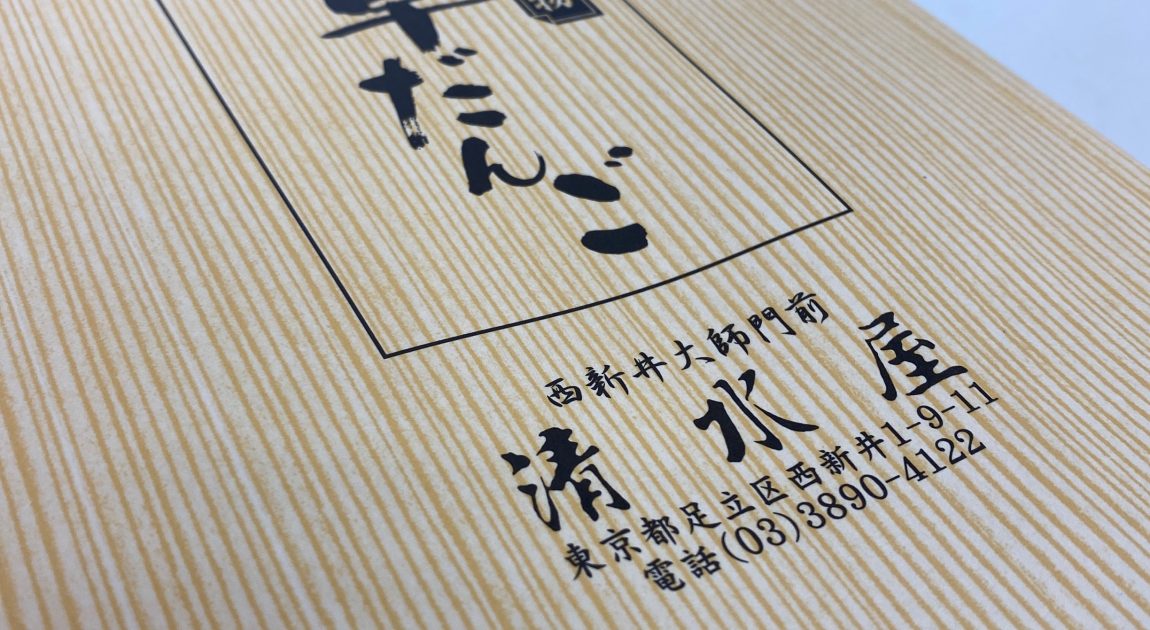 だんご
西新井大師門前
清水屋
東京都足立区西新井1-9-11
電話(03)3890-4122